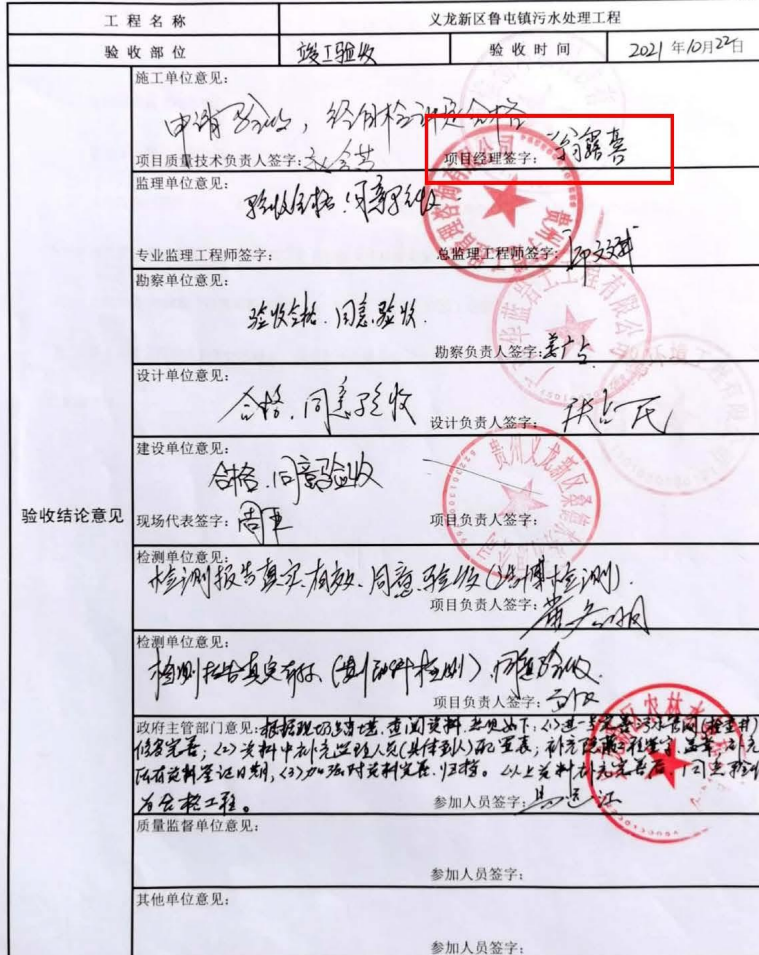 工程名称 义龙新区鲁屯镇污水处理工程
验收部位 竣工验收 验收时间 2021年10月22日
验收结论意见
施工单位意见:
申请验收,经自检评定合格
项目质量技术负责人签字: 项目经理签字:
监理单位意见:
验收合格.同意验收
专业监理工程师签字: 总监理工程师签字:
勘察单位意见:
验收合格.同意验收.
勘察负责人签字:姜广占
设计单位意见:
合格.同意验收
设计负责人签字:张占民
建设单位意见:
合格.同意验收
现场代表签字:周亚 项目负责人签字:
检测单位意见:
检测报告真实有效、同意验收
项目负责人签字:
检测单位意见:
检测报告真实有效 同意验收
项目负责人签字:
政府主管部门意见:根据现场踏堪,查阅资料,意见如下:(1)进一步完善污水管网(检查井)
任务完善;(2)资料中补充监理人员(具体到人)配置表;补充隐蔽工程签字、盖章,补充
所有资料签证日期,(3)加强对资料完善、归档。以上资料补充完善后,同意验收
为合格工程。
参加人员签字:
质量监督单位意见:
参加人员签字:
其他单位意见:
参加人员签字:
贵州义龙新区
区农林水